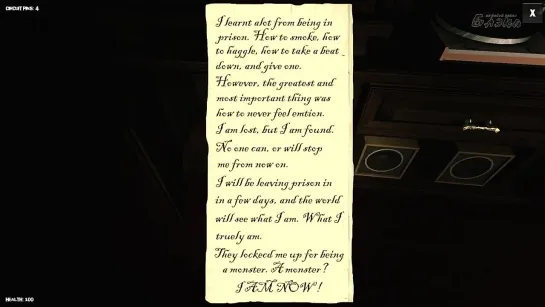 CIRCUIT PINS: 4
X
I learnt alot from being in
prison. How to smoke, how
to haggle, how to take a beat
down, and give one.
However, the greatest and
most important thing was
how to never feel emtion.
I am lost, but I am found.
No one can, or will stop
me from now on.
I will be leaving prison in
in a few days, and the world
will see what I am. What I
truely am.
They lockecd me up for being
a monster. A monster?
I AM NOW!
HEALTH: 100